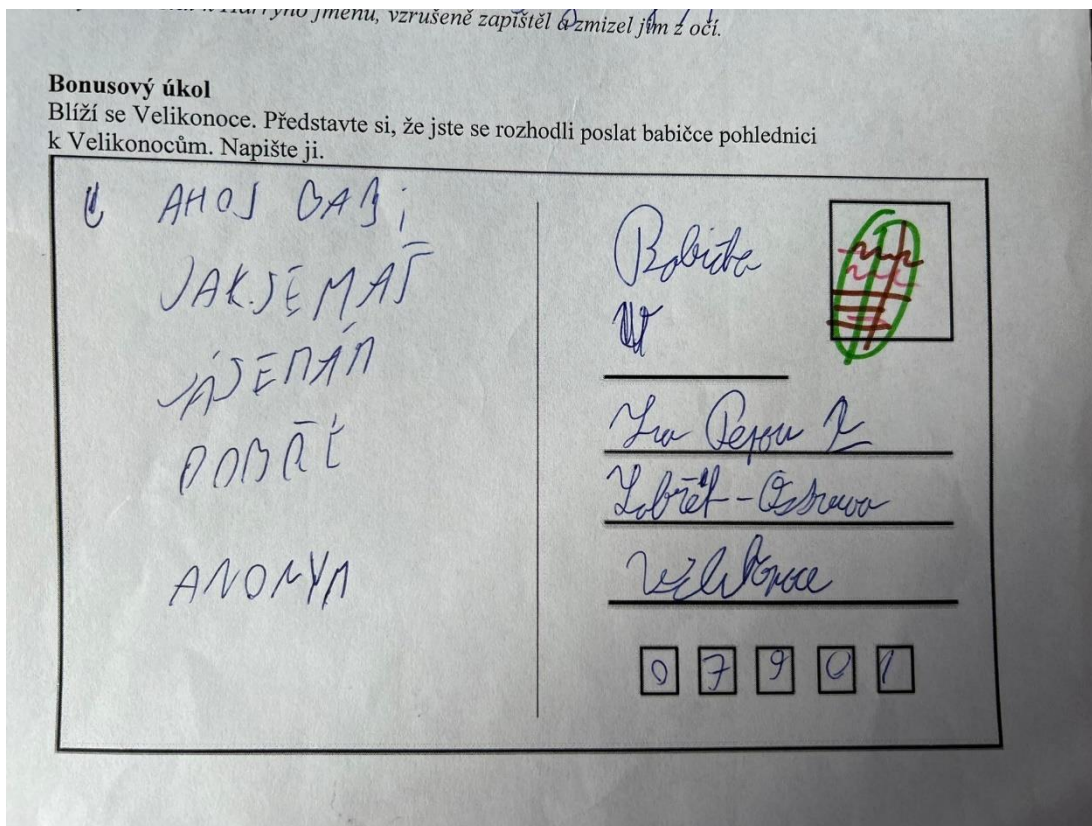 Harryho jménu, vzrušeně zapištěl a zmizel jim z očí.
Bonusový úkol
Blíží se Velikonoce. Představte si, že jste se rozhodli poslat babičce pohlednici
k Velikonocům. Napište ji.
AHOJ BABI
JAK SE MÁŠ
JÁ SE MÁM
DOBŘE
ANONYM
Babička
Záhřeb-Ostrava
Velikonoce
07901